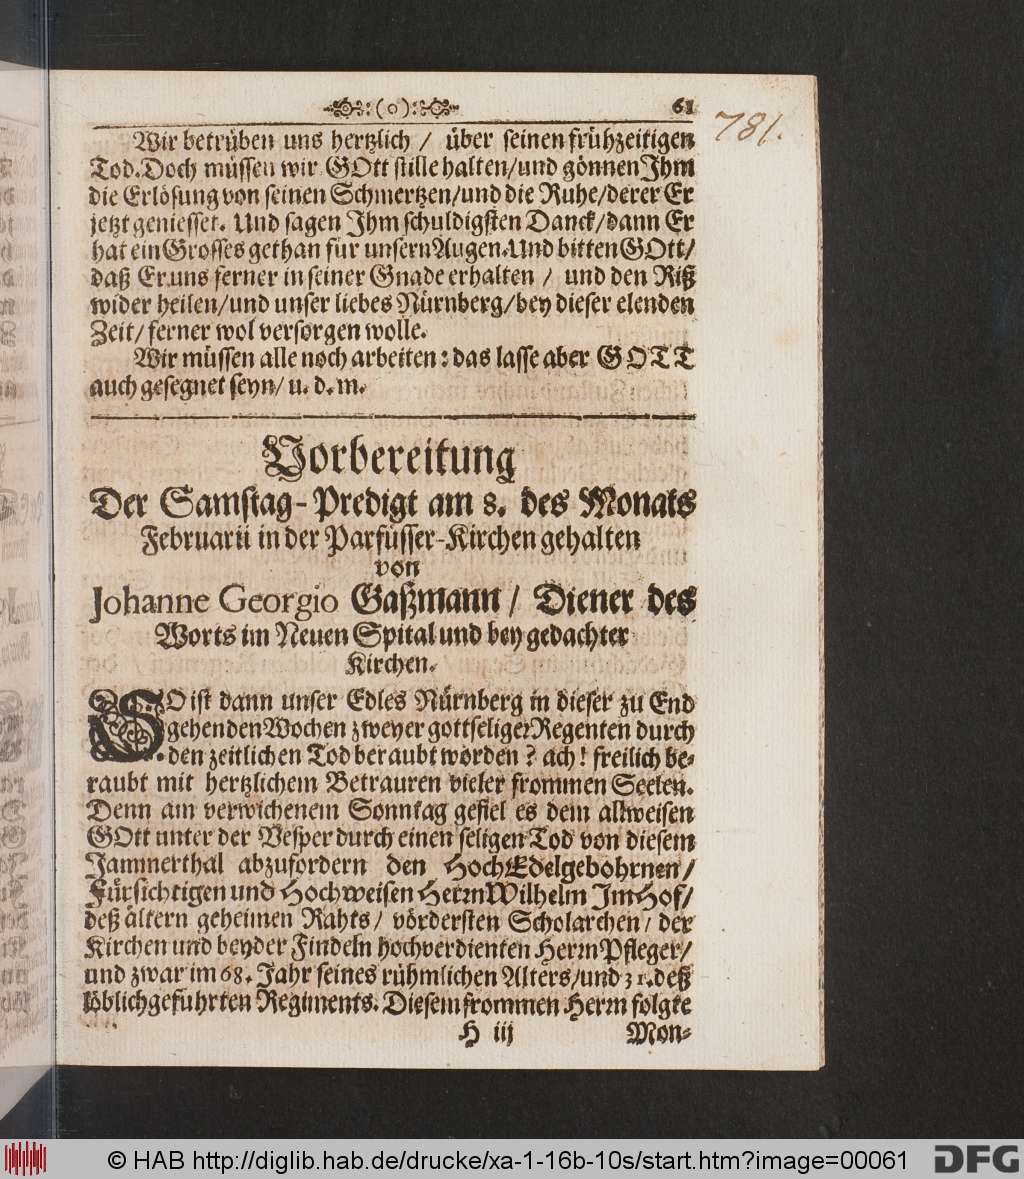 :(o): 61
781.
Wir betrüben uns hertzlich / über seinen frühzeitigen
Tod. Doch müssen wir GOtt stille halten/und gönnen Ihm
die Erlösung von seinen Schmertzen/und die Ruhe/derer Er
jetzt geniesset. Und sagen Ihm schuldigsten Danck/dann Er
hat ein Grosses gethan für unsern Augen. Und bitten GOtt/
daß Er uns ferner in seiner Gnade erhalten / und den Riß
wider heilen/und unser liebes Nürnberg/bey dieser elenden
Zeit/ ferner wol versorgen wolle.
Wir müssen alle noch arbeiten: das lasse aber GOTT
auch gesegnet seyn/ u. d. m.
Vorbereitung
Der Samstag-Predigt am 8. des Monats
Februarii in der Parfüsser-Kirchen gehalten
von
Johanne Georgio Gaßmann / Diener des
Worts im Neuen Spital und bey gedachter
Kirchen.
SO ist dann unser Edles Nürnberg in dieser zu End
gehenden Wochen zweyer gottseliger Regenten durch
den zeitlichen Tod beraubt worden? ach! freilich be-
raubt mit hertzlichem Betrauren vieler frommen Seelen.
Denn am verwichenem Sonntag gefiel es dem allweisen
GOtt unter der Vesper durch einen seligen Tod von diesem
Jammerthal abzufordern den HochEdelgebohrnen/
Fürsichtigen und Hochweisen Herrn Wilhelm ImHof/
deß ältern geheimen Rahts/ vördersten Scholarchen/ der
Kirchen und beyder Findeln hochverdienten Herrn Pfleger/
und zwar im 68. Jahr seines rühmlichen Alters/und 31. deß
löblichgeführten Regiments. Diesem frommen Herrn folgte
H iij Mon-
© HAB http://diglib.hab.de/drucke/xa-1-16b-10s/start.htm?image=00061
DFG